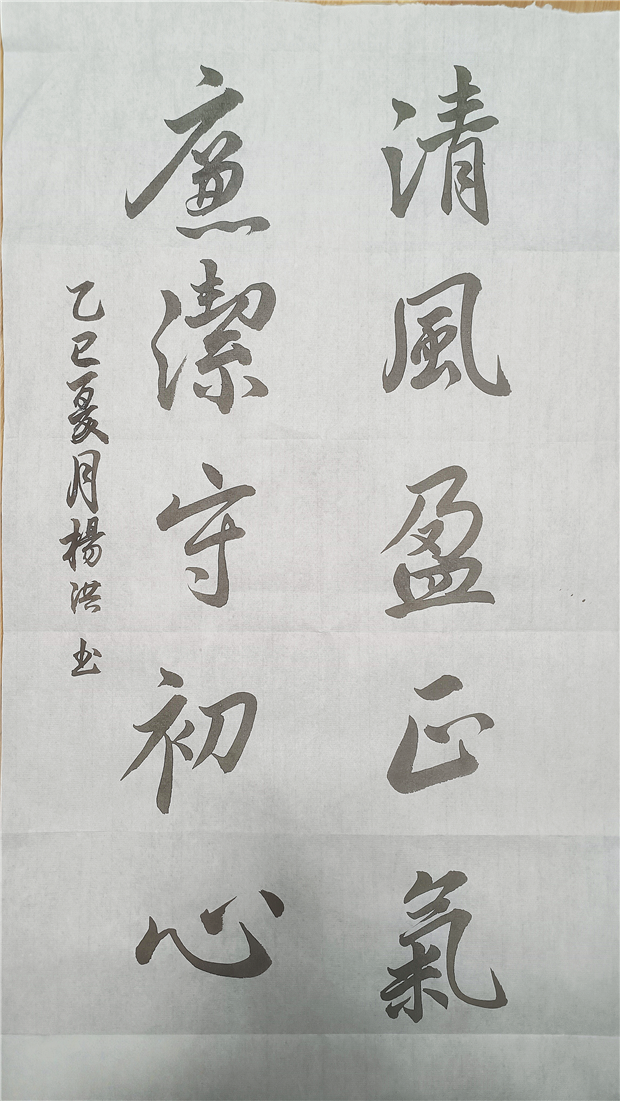 清風盈正氣
廉潔守初心
乙巳夏月楊洪书